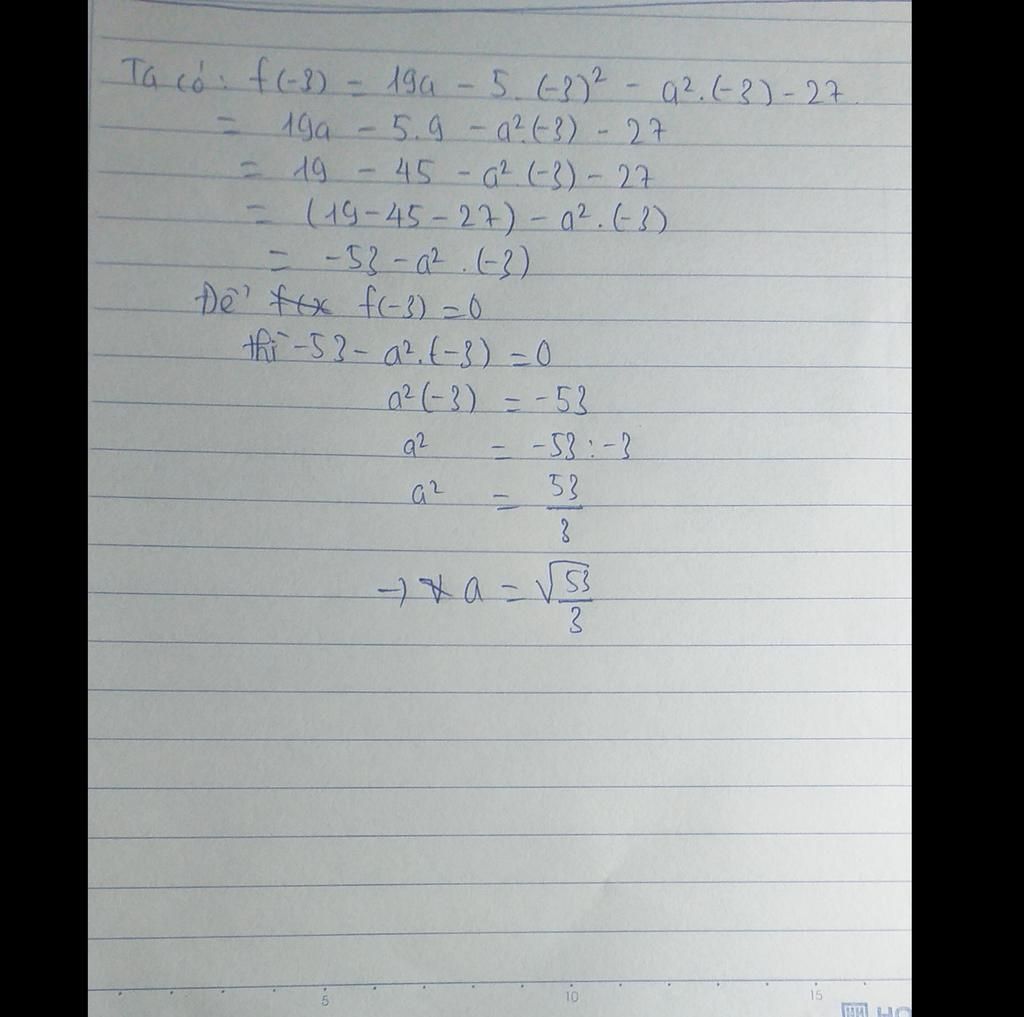 Ta có: f(-3) = 19a - 5.(-3)² - a².(-3) - 27
= 19a - 5.9 - a².(-3) - 27
= 19 - 45 - a².(-3) - 27
= (19-45-27) - a².(-3)
= -53 - a².(-3)
Để f(x f(-3) = 0
thì -53 - a².(-3) = 0
a²(-3) = -53
a² = -53 : -3
a² = 53/3
→ a = √53/3
5 10 15